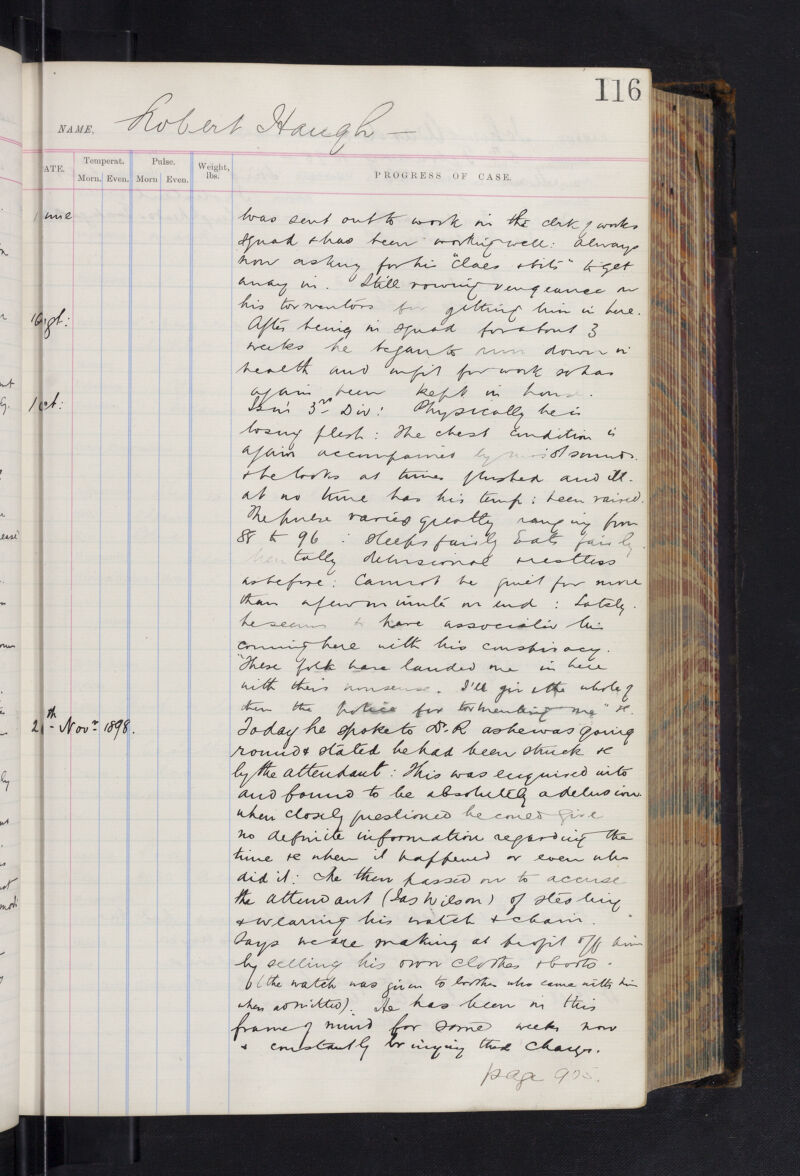 116
NAME. Robert Haugh —
ATE. Temperat. Pulse. Weight, lbs. PROGRESS OF CASE.
Morn. Even. Morn Even.
June was sent out to work in the clrk of works
squad & has been working well: always
now asking for his "claes & bits" to get
away in. Still vowing vengeance on
his tormentors for getting him in here.
Sept: After being in squad for about 3
weeks he began to run down in
health and unfit for work so has
again been kept in house.
Oct: Is in 3rd Div: Physically he is
losing flesh: The chest condition is
again accompanied by moist sounds
& he looks at times flushed and ill.
at no time has his temp: been raised.
The pulse varies greatly ranging from
88 to 96: sleeps fairly Eats fairly
Mentally delusional & restless
as before: Cannot be quiet for more
than a few minutes on end: Lately
he seems to have associated his
coming here with his conspiracy.
"These folk have landed me in here
with their nonsense. I'll give the whole of
them the police for tormenting me" &c.
2 th Novr 1898. Today he spoke to Dr. R as he was going
round & stated he had been struck &c
by the attendant: This was enquired into
and found to be absolutely a delusion
when closely questioned he could give
no definite information regarding the
time &c when it happened or even who
did it: He then passed on to accuse
the attendant (Jas Wilson) of stealing
& wearing his watch & chain.
Says we are making a profit off him
by selling his own clothes & boots.
(the watch was given to brother who came with him
when admitted). He has been in this
frame of mind for some weeks now
& constantly bringing these charges.
page 975.